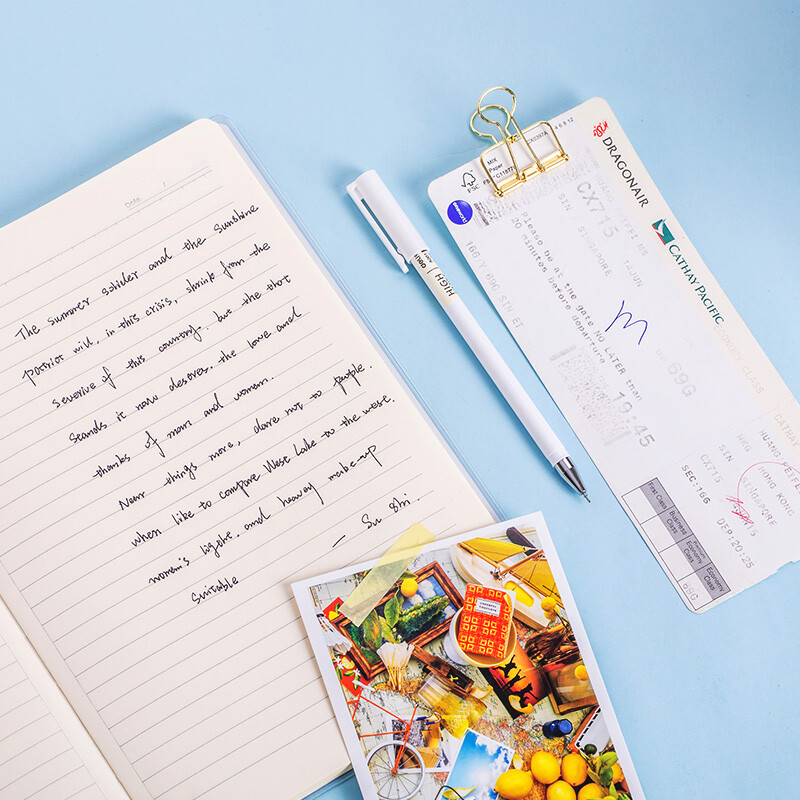 Date / /
The summer soldier and the sunshine
patriot will, in this crisis, shrink from the
severive of this country. but the thot
stands it now deserves. the love and
thanks of mam and woman.
Near things more, dare not to people.
When like to compare West Lake to the west.
women's lighte. and heavy make-up
suitable
— Su Shi.
HIGH
MIX
Paper
FSC
DRAGONAIR
CATHAY PACIFIC
CX715
SIN SINGAPORE
Please be at the gate NO LATER than
20 minutes before departure
19:45
69G
166 Y 690 SIN ET
m
HKG HONG KONG
SIN SINGAPORE
CX715
SEC:166 DEP:20:25
First Class
Business Class
Premium Economy Class
Economy Class
69G